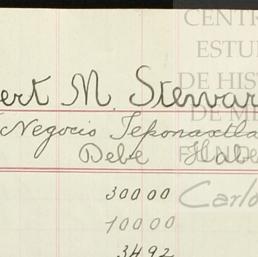 ert M. Stewar
Negocio Teponaxtla
Debe Habe
300 00
100 00
34 92
CENTR
ESTU
DE HIS
DE M
FUND
Carlo